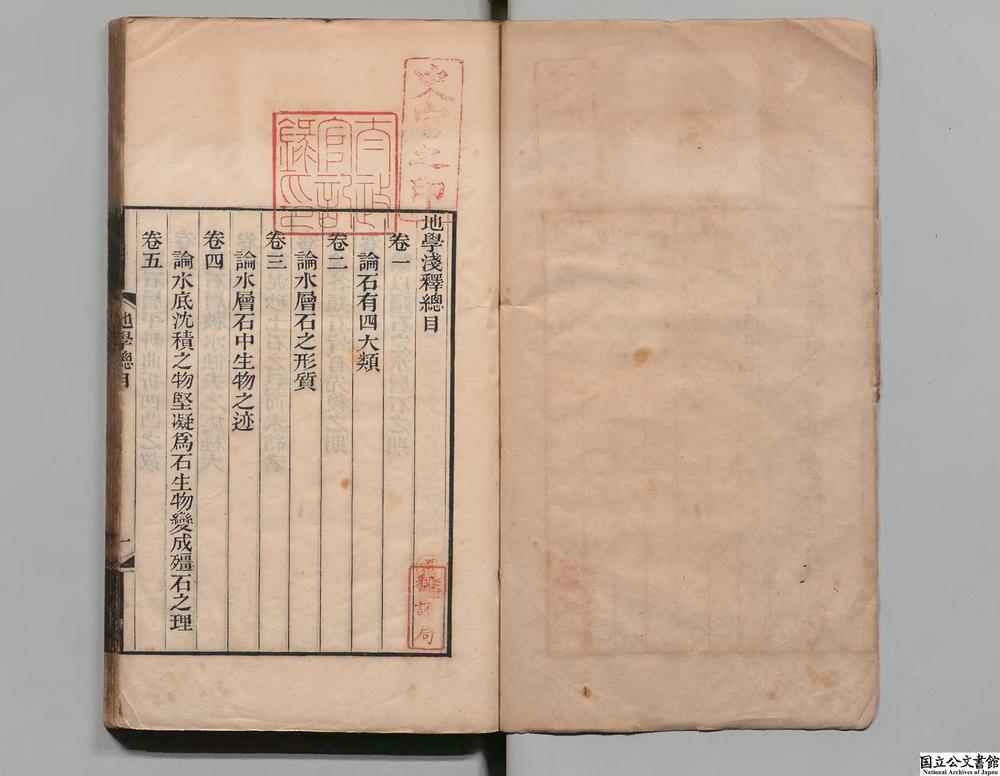 地學淺釋總目
卷一
論石有四大類
卷二
論水層石之形質
卷三
論水層石中生物之迹
卷四
論水底沈積之物堅凝爲石生物變成殭石之理
卷五
地學總目
一
史官之印
太政官記錄印
飜訳局
国立公文書館
National Archives of Japan